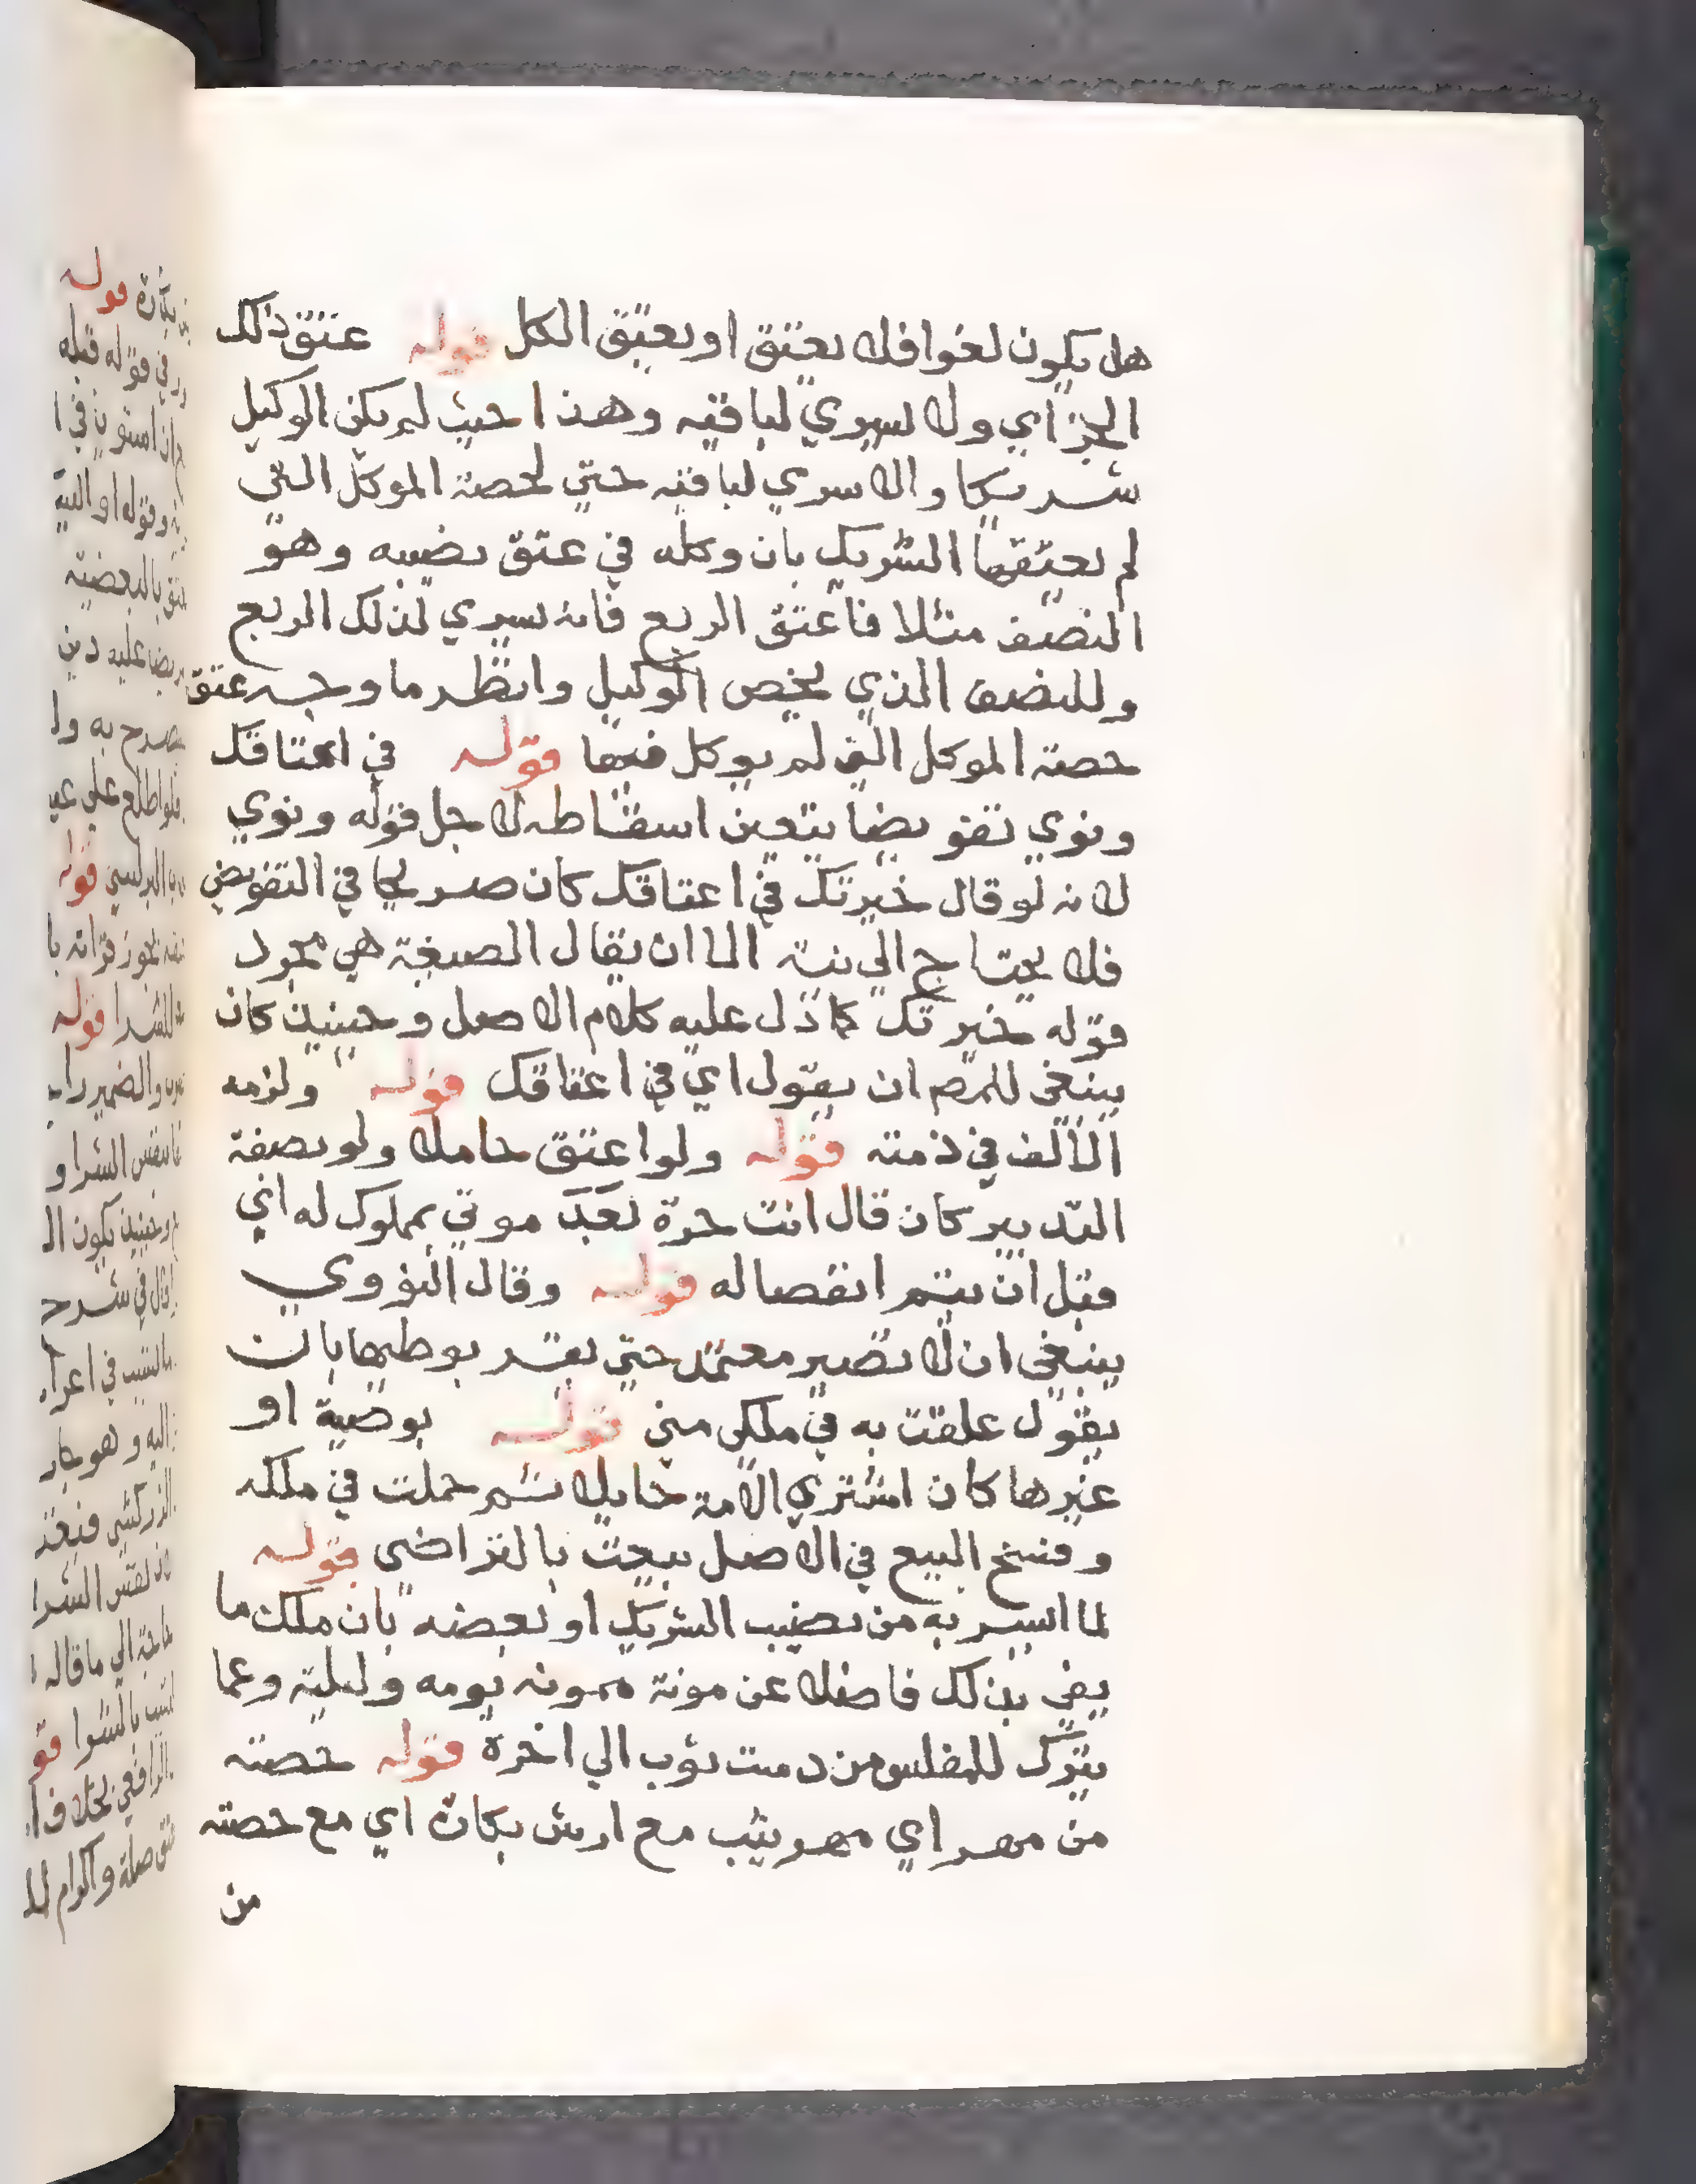 هل يكون لغوا فلا يعتق او يعتق الكل قوله عتق ذلك
الجزاي ولا يسري لباقيه وهذا حيث لم يكن الوكيل
شريكا والا سري لباقيه حتي لحصة الموكل التي
لم يعتقها الشريك بان وكله في عتق نصيبه وهو
النصف مثلا فاعتق الربع فانه يسري لذلك الربع
وللنصف الذي يخص الوكيل وانظر ما وجه عتق
حصة الموكل التي لم يوكل فيها قوله في اعتاقك
ونوي تفويضا يتعين اسقاطه لاجل قوله ونوي
لانه لو قال خيرتك في اعتاقك كان صريحا في التفويض
فلا يحتاج الي نية الا ان يقال الصيغة هي مجرد
قوله خيرتك كما دل عليه كلام الاصل وحينيذ كان
ينبغي للمص ان يقول اي في اعتاقك قوله ولزمه
الالف في ذمته قوله ولو اعتق حاملا ولو بصفة
التدبير كان قال انت حرة بعد موتي بمملوك له اي
قبل ان يتم انفصاله قوله وقال النووي
ينبغي ان لا تصير معتمد حتي يقر بوطيها بان
يقول علقت به في ملكي مني قوله بوصية او
غيرها كان اشتري الامة حايلا ثم حملت في ملكه
وفسخ البيع في الاصل ببعت بالتراضي قوله
لما ايسر به من نصيب الشريك او بعضه بان ملك ما
يفي بذلك فاضلا عن مونة ممونه يومه وليلته وعما
يترك للمفلس من دست ثوب الي اخره قوله حصته
من مهر اي مهر ثيب مع ارش بكارة اي مع حصته
من
قوله
في قوله قبله
بالبعضية
عليه دين
به ولا
فلو اطلع علي
البرلسي قوله
قوله
والضمير
الشرا و
وحينيذ يكون
قال في شرح
في اعرا
اليه وهو
الزركشي
الشرا
الي ما قاله
قو
الرافعي بخلاف
صلة واكرام